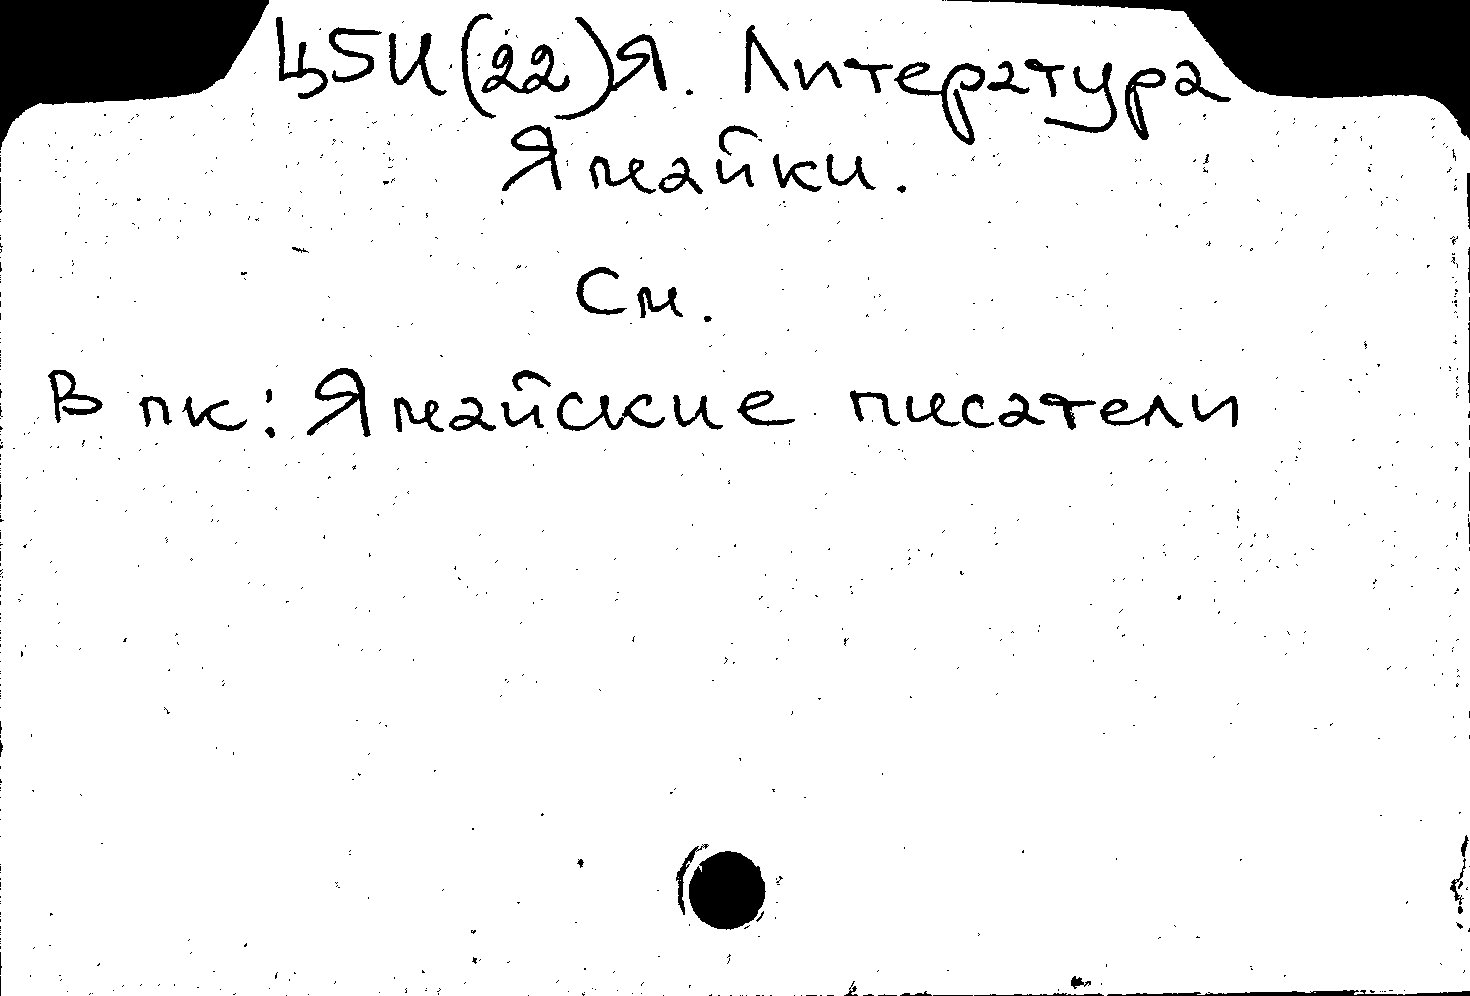 Ц5И(22)Я. Литература
Ямайки.
См.
В пк: Ямайские писатели